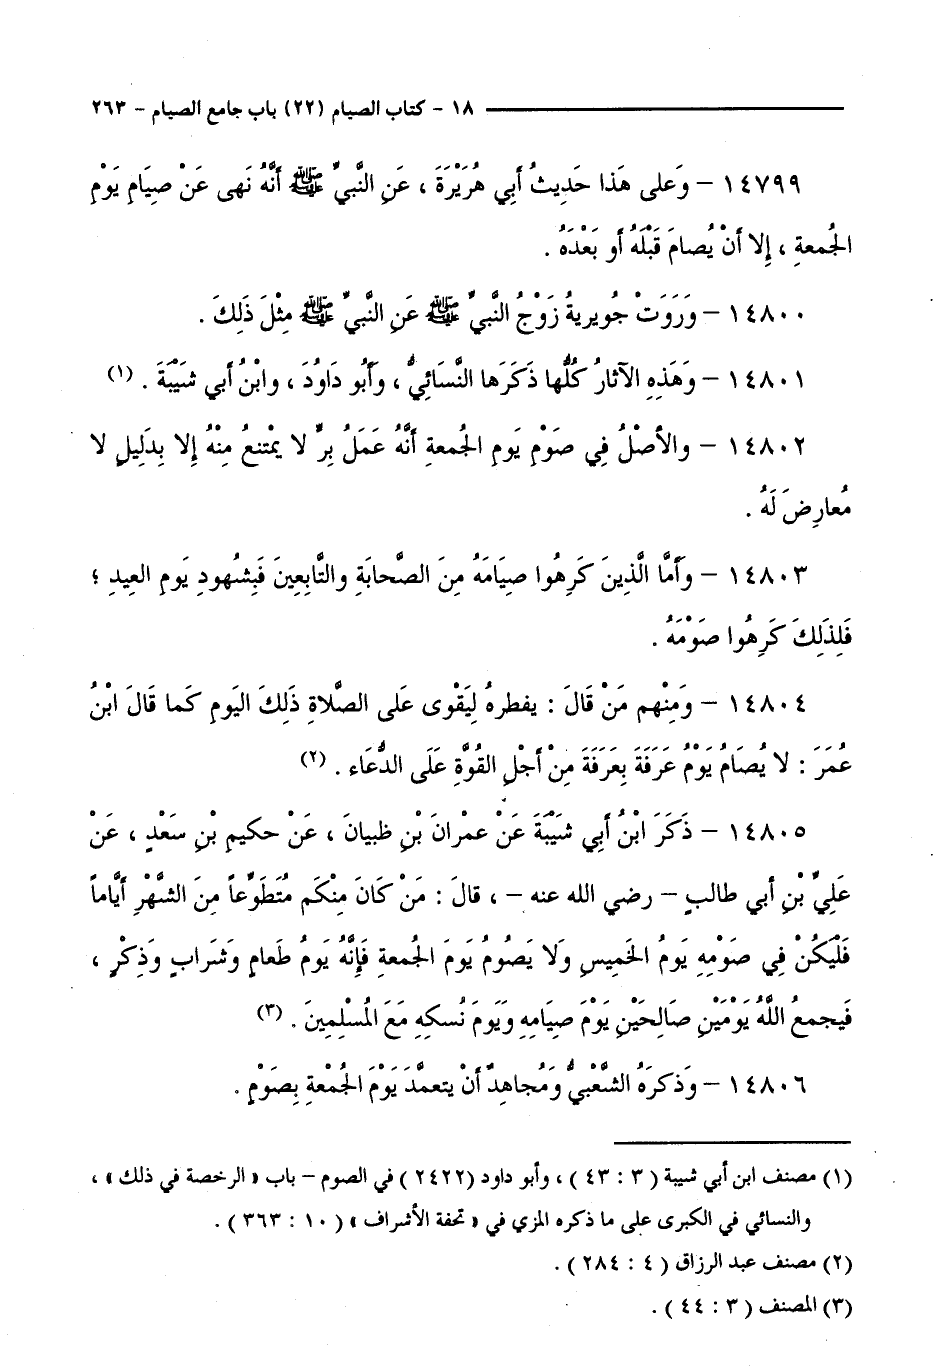 ١٨ - كتاب الصيام (٢٢) باب جامع الصيام - ٢٦٣
١٤٧٩٩ - وَعلى هَذا حَدِيثُ أَبِي هُرَيْرَةَ ، عَنِ النَّبِيِّ ﷺ أَنَّهُ نَهى عَنْ صِيَامِ يَوْمِ
الجُمعةِ ، إِلا أَنْ يُصامَ قَبْلَهُ أو بَعْدَهُ .
١٤٨٠٠ - وَرَوَتْ جُويريةُ زَوْجُ النَّبِيِّ ﷺ عَنِ النَّبِيِّ ﷺ مِثْلَ ذَلِكَ .
١٤٨٠١ - وَهَذِهِ الآثارُ كُلُّها ذَكَرَها النَّسَائِيُّ ، وَأَبُو دَاوُدَ ، وابْنُ أَبي شَيْبَةَ . (١)
١٤٨٠٢ - والأصْلُ فِي صَوْمِ يَومِ الجُمعةِ أَنَّهُ عَمَلُ بِرٍّ لا يمْتنعُ مِنْهُ إِلا بِدَلِيلٍ لا
مُعارِضَ لَهُ .
١٤٨٠٣ - وَأَمَّا الَّذِينَ كَرِهُوا صِيَامَهُ مِنَ الصَّحابَةِ والتَّابِعِينَ فَبِشُهودِ يَومِ العِيدِ ؛
فَلِذَلِكَ كَرِهُوا صَوْمَهُ .
١٤٨٠٤ - وَمِنْهم مَنْ قَالَ : يفطرهُ لِيَقْوى عَلى الصَّلاةِ ذَلِكَ اليَومِ كَما قَالَ ابْنُ
عُمَرَ : لا يُصَامُ يَوْمُ عَرَفَةَ بِعَرفَةَ مِنْ أَجْلِ القُوَّةِ عَلَى الدُّعَاء . (٢)
١٤٨٠٥ - ذَكَرَ ابْنُ أَبِي شَيْبَةَ عَنْ عِمْرانَ بْنِ ظبيانَ ، عَنْ حكيمِ بْنِ سَعْدٍ ، عَنْ
عَلِيِّ بْنِ أَبي طالبٍ - رضي الله عنه - ، قالَ : مَنْ كَانَ مِنْكم مُتَطَوِّعاً مِنَ الشَّهْرِ أَيَّاماً
فَلْيَكُنْ فِي صَوْمِهِ يَومُ الخَمِيسِ وَلا يَصُومُ يَومَ الجُمعةِ فَإِنَّهُ يَومُ طَعامٍ وَشَرابٍ وَذِكْرٍ ،
فَيجمعُ اللَّهُ يَوْمَيْنِ صَالِحَيْنِ يَوْمَ صِيَامِهِ وَيَومَ نُسكِهِ مَعَ المُسْلِمِينَ . (٣)
١٤٨٠٦ - وَذكرَهُ الشَّعْبِيُّ وَمُجاهِدٌ أَنْ يتعمَّدَ يَوْمَ الجُمْعةِ بِصَوْمٍ .
(١) مصنف ابن أبي شيبة ( ٣ : ٤٣ ) ، وأبو داود (٢٤٢٢ ) في الصوم - باب « الرخصة في ذلك » ،
والنسائي في الكبرى على ما ذكره المزي في « تحفة الأشراف » ( ١٠ : ٣٦٣ ) .
(٢) مصنف عبد الرزاق ( ٤ : ٢٨٤ ) .
(٣) المصنف ( ٣ : ٤٤ ) .